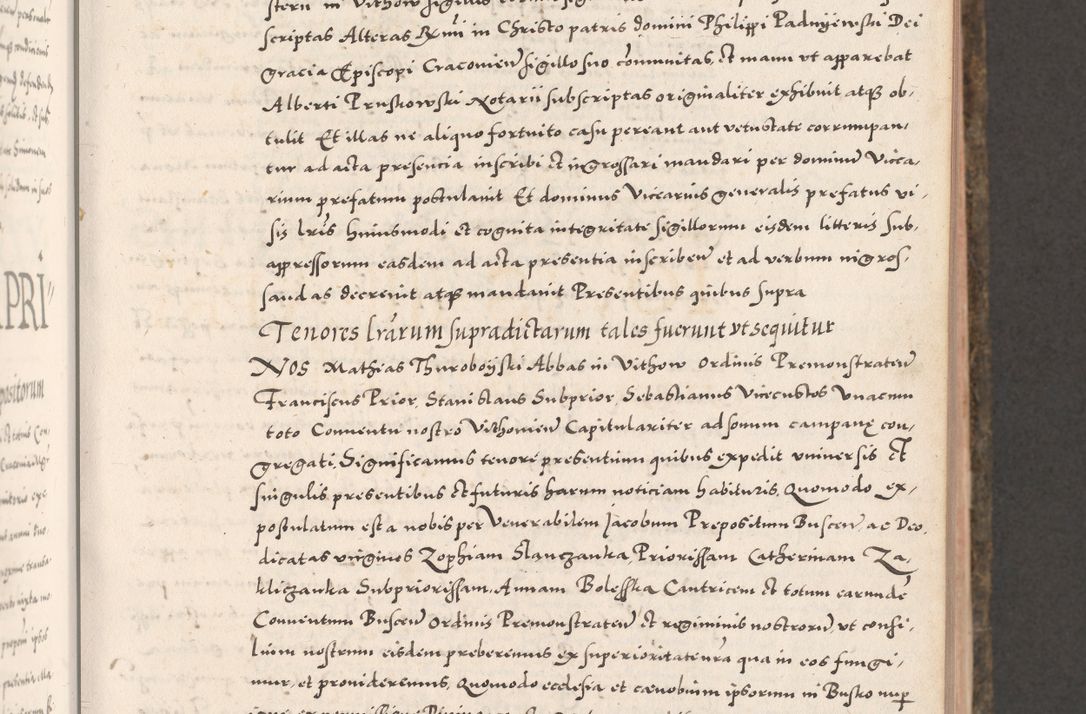 scriptas Alteras Rmi in Christo patris domini Philippi Padnyewski Dei
gracia Episcopi Cracovien sigillo suo communitas, et manu vt apparebat
Alberti Pruskowski Notarii subscriptas originaliter exhibuit atqz ob-
tulit Et illas ne aliquo fortuito casu pereant aut vetustate corrumpan-
tur ad acta presencia inscribi et ingrossari mandari per dominu Vica-
rium prefatum postulavit Et dominus Vicarius generalis prefatus vi-
sis lris huiusmodi et cognita integritate sigillorum eisdem litteris sub-
appressorum easdem ad acta presentia inscriben et ad verbum ingros-
sandas decrevit atqz mandavit Presentibus quibus supra
Tenores lrarum supradictarum tales fuerunt vt sequitur
NOS Mathias Thuroboyski Abbas in Vithow Ordinis Premonstraten
Franciscus Prior, Stanislaus Subprior, Sebastianus Vicecustos Vnacum
toto Conuentu nostro Vithovien Capitulariter ad sonum campanę con-
gregati, Significamus tenore presentium quibus expedit vniversis et
singulis presentibus et futuris harum noticiam habituris, Quomodo ex-
postulatum est a nobis per Venerabilem Jacobum Prepositum Buscen ac Deo
dicatas virgines Zophiam Slanczanka Priorissam Catherinam Za-
kliczanka Subpriorissam, Annam Bolesska Cantricem et totum earunde
Conuentum Buscen Ordinis Premonstraten et regiminis nostrorum, vt consi-
lium nostrum eisdem preberemus ex superioritate nra qua in eos fungi-
mur, et provideremus, Quomodo ecclesia et cœnobium ipsorum in Busko nup